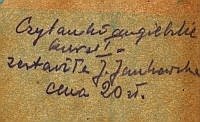 Czytanki angielskie
kurs I.
zestawiła J. Jankowska
cena 20 zł.